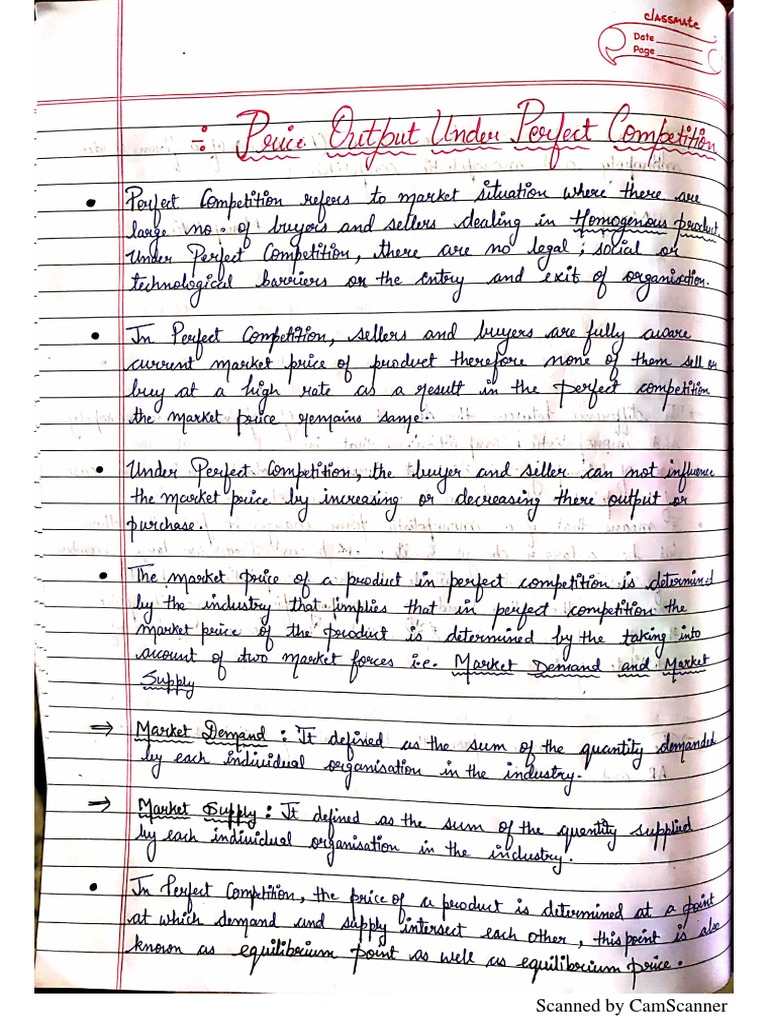 classmate
Date
Page
÷ Price Output Under Perfect Competition
• Perfect Competition refers to market situation where there are
large no. of buyers and sellers dealing in Homogenous product.
Under Perfect Competition, there are no legal, social or
technological barriers on the entry and exit of organisation.
• In Perfect Competition, sellers and buyers are fully aware
current market price of product therefore none of them sell or
buy at a high rate as a result in the perfect competition
the market price remains same.
• Under Perfect Competition, the buyer and seller can not influence
the market price by increasing or decreasing there output or
purchase.
• The market price of a product in perfect competition is determined
by the industry that implies that in perfect competition the
market price of the product is determined by the taking into
account of two market forces i.e. Market Demand and Market
Supply
⇒ Market Demand : It defined as the sum of the quantity demanded
by each individual organisation in the industry.
⇒ Market Supply : It defined as the sum of the quentity supplied
by each individual organisation in the industry.
• In Perfect Compition, the price of a product is determined at a point
at which demand and supply intersect each other, this point is also
known as equilibrium point as well as equilibrium price.
Scanned by CamScanner